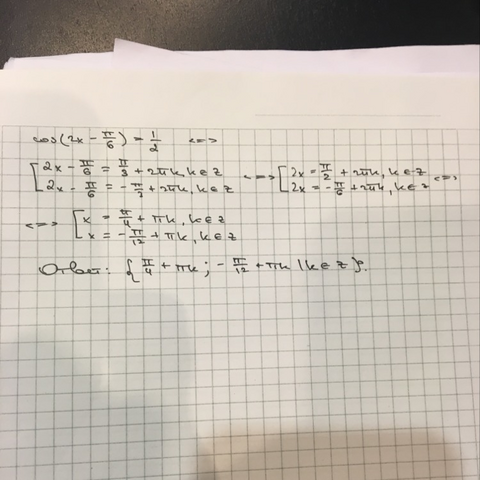 cos(2x - π/6) = 1/2 <=>
[ 2x - π/6 = π/3 + 2πk, k ∈ z
2x - π/6 = -π/3 + 2πk, k ∈ z <=> [ 2x = π/2 + 2πk, k ∈ z
2x = -π/6 + 2πk, k ∈ z <=>
<=> [ x = π/4 + πk, k ∈ z
x = -π/12 + πk, k ∈ z
Ответ: { π/4 + πk ; -π/12 + πk | k ∈ z }.